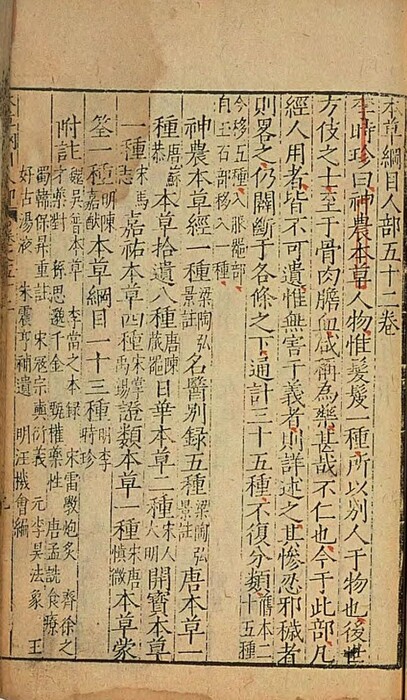 本草綱目人部五十二卷
李時珍曰神農本草人物惟髮髲一種所以別人于物也後世
方伎之士至于骨肉膽血咸稱為藥甚哉不仁也今于此部凡
經人用者皆不可遺惟無害于義者則詳述之其慘忍邪穢者
則畧之仍闢斷于各條之下通計三十五種不復分類舊本二十五種
今移五種入服器部
自玉石部移入一種
神農本草經一種梁陶弘景註 名醫別録五種梁陶弘景註 唐本草一
種唐蘇恭 本草拾遺八種唐陳藏噐 日華本草二種宋人大明 開寶本草
一種宋馬志 嘉祐本草四種宋掌禹錫 證類本草一種宋唐慎微 本草蒙
筌一種明陳嘉謨 本草綱目一十三種明李時珍
附註 魏吳普本草 李當之本録 宋雷斆炮炙 齊徐之
才藥對 孫思邈千金 甄權藥性 唐孟詵食療
蜀韓保昇重註 宋寇宗奭衍義 元李杲法象 王
好古湯液 朱震亨補遺 明汪機會編